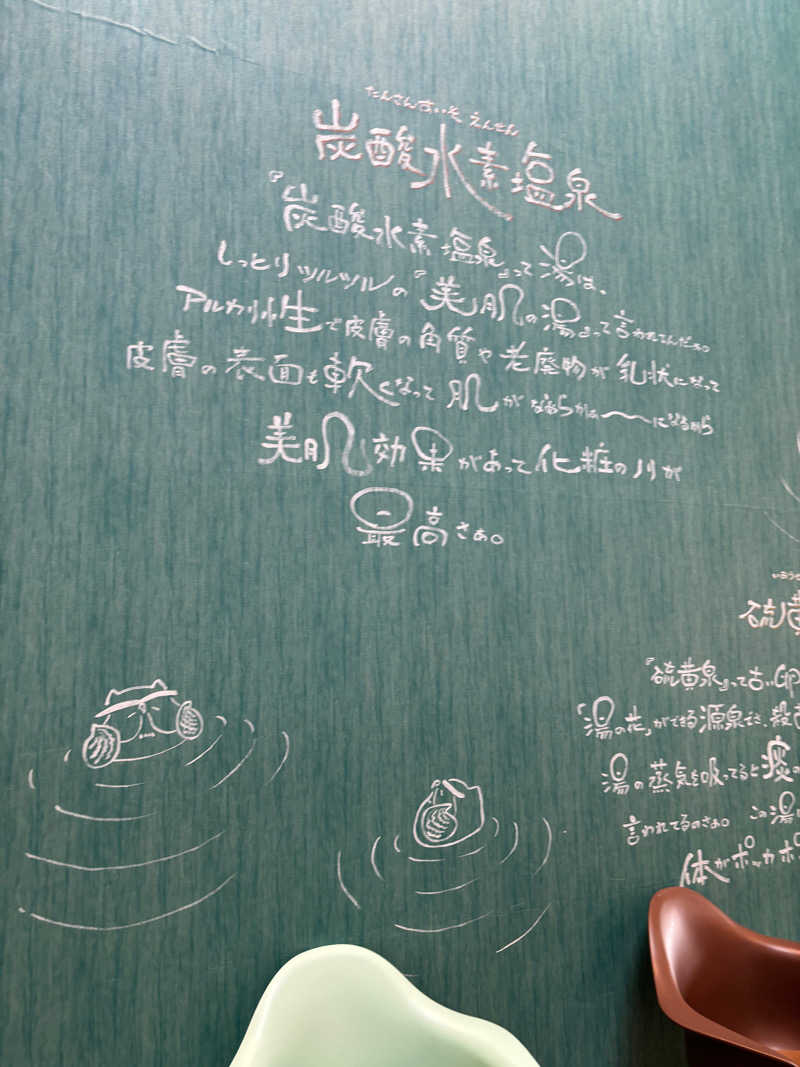 たんさんすいそ えんせん
炭酸水素塩泉
『炭酸水素塩泉』って湯は、
しっとりツルツルの『美肌の湯』って言われてんだぁ。
アルカリ性で皮膚の角質や老廃物が乳状になって
皮膚の表面も軟くなって肌がなめらかぁ〜〜になるから
美肌効果があって化粧のノリが
最高さぁ。
いおうせ
硫黄
『硫黄泉』って古い
「湯の花」ができる源泉でさ、殺
湯の蒸気を吸ってると痰の
言われてるのさぁ。 この湯
体がポッカポ